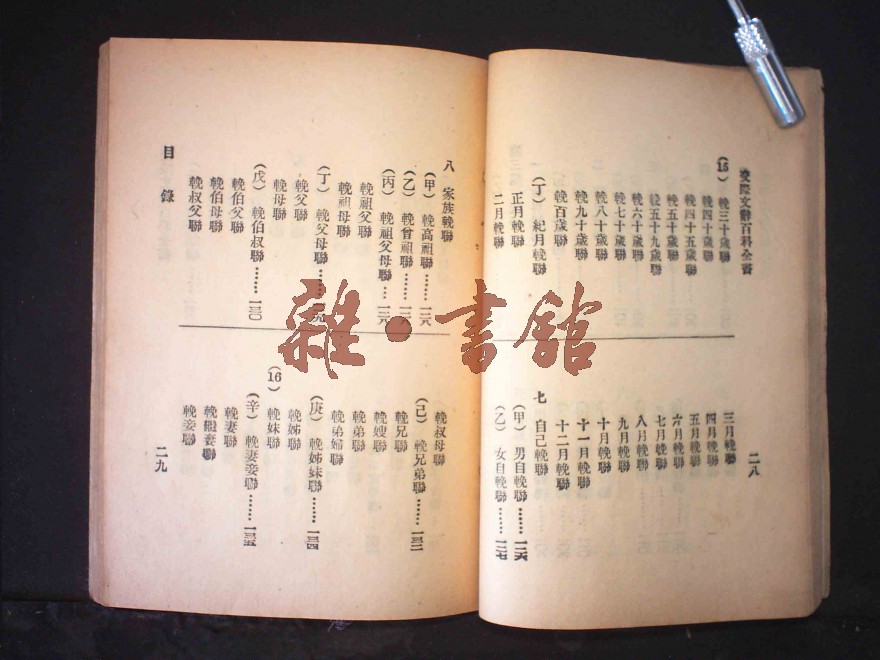 交際文辭百科全書
(15)
輓三十歲聯
輓四十歲聯
輓四十五歲聯
輓五十歲聯
輓五十九歲聯
輓六十歲聯
輓七十歲聯
輓八十歲聯
輓九十歲聯
輓百歲聯
(丁) 紀月輓聯
正月輓聯
二月輓聯
二八
三月輓聯
四月輓聯
五月輓聯
六月輓聯
七月輓聯
八月輓聯
九月輓聯
十月輓聯
十一月輓聯
十二月輓聯
七 自己輓聯
(甲) 男自輓聯……一二六
(乙) 女自輓聯……一二七
八 家族輓聯
(甲) 輓高祖聯……一二八
(乙) 輓曾祖聯……一二八
(丙) 輓祖父母聯…一二八
輓祖父聯
輓祖母聯
(丁) 輓父母聯……一二九
輓父聯
輓母聯
(戊) 輓伯叔聯……一三〇
輓伯父聯
輓伯母聯
輓叔父聯
目錄
輓叔母聯
(己) 輓兄弟聯……一三二
輓兄聯
輓嫂聯
輓弟聯
輓弟婦聯
(庚) 輓姊妹聯……一三四
輓姊聯
(16)
輓妹聯
(辛) 輓妻妾聯……一三五
輓妻聯
輓妾聯
二九
雜·書館